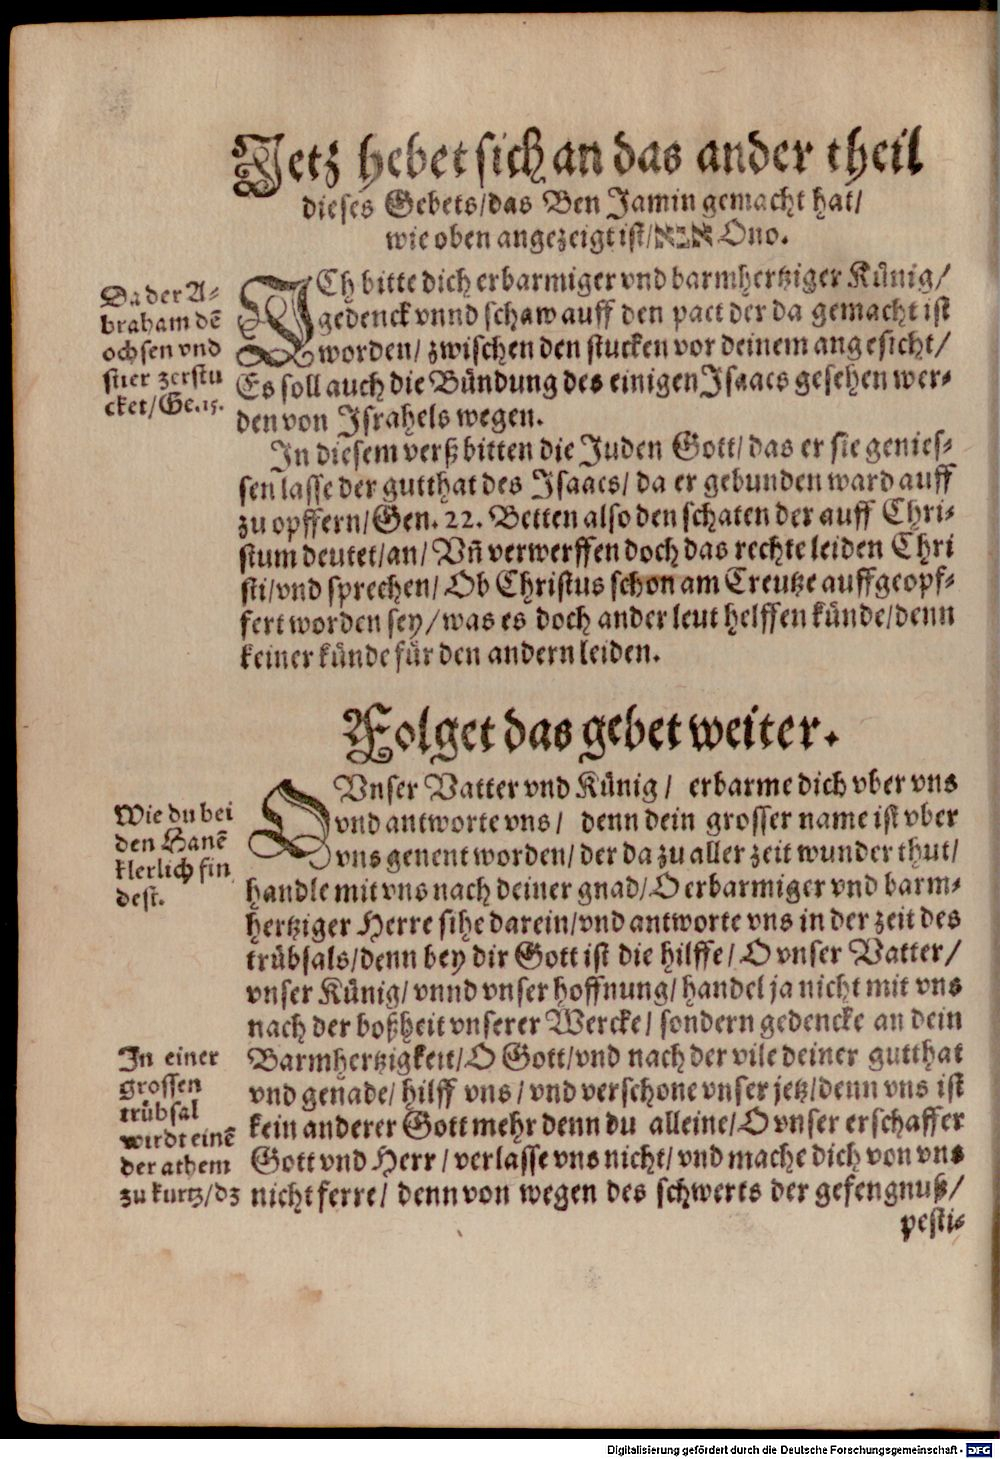 Jetz hebet sich an das ander theil
dieses Gebets/das Ben Jamin gemacht hat/
wie oben angezeigt ist/אנא Ono.
Da der A-
braham dẽ
ochsen vnd
stier zerstu
cket/Ge.15.
ICh bitte dich erbarmiger vnd barmhertziger Künig/
gedenck vnnd schaw auff den pact der da gemacht ist
worden/ zwischen den stucken vor deinem angesicht/
Es soll auch die Bündung des einigen Isaacs gesehen wer-
den von Israhels wegen.
In diesem verß bitten die Juden Gott/ das er sie genies-
sen lasse der gutthat des Isaacs/ da er gebunden ward auff
zu opffern/Gen. 22. Betten also den schaten der auff Chri-
stum deutet/an/ Vñ verwerffen doch das rechte leiden Chri
sti/vnd sprechen/ Ob Christus schon am Creutze auffgeopf-
fert worden sey/was es doch ander leut helffen künde/denn
keiner künde für den andern leiden.
Folget das gebet weiter.
Wie du bei
den Hanẽ
klerlich fin
dest.
O Vnser Vatter vnd Künig/ erbarme dich vber vns
vnd antworte vns/ denn dein grosser name ist vber
vns genent worden/ der da zu aller zeit wunder thut/
handle mit vns nach deiner gnad/O erbarmiger vnd barm-
hertziger Herre sihe darein/vnd antworte vns in der zeit des
trübsals/denn bey dir Gott ist die hilffe/ O vnser Vatter/
vnser Künig/ vnnd vnser hoffnung/ handel ja nicht mit vns
nach der boßheit vnserer Wercke/ sondern gedencke an dein
Barmhertzigkeit/O Gott/vnd nach der vile deiner gutthat
vnd genade/ hilff vns/ vnd verschone vnser jetz/denn vns ist
kein anderer Gott mehr denn du alleine/O vnser erschaffer
Gott vnd Herr/ verlasse vns nicht/ vnd mache dich von vns
nicht ferre/ denn von wegen des schwerts der gefengnuß/
In einer
grossen
trübsal
wirdt einẽ
der athem
zu kurtz/dz
pesti-
Digitalisierung gefördert durch die Deutsche Forschungsgemeinschaft - DFG